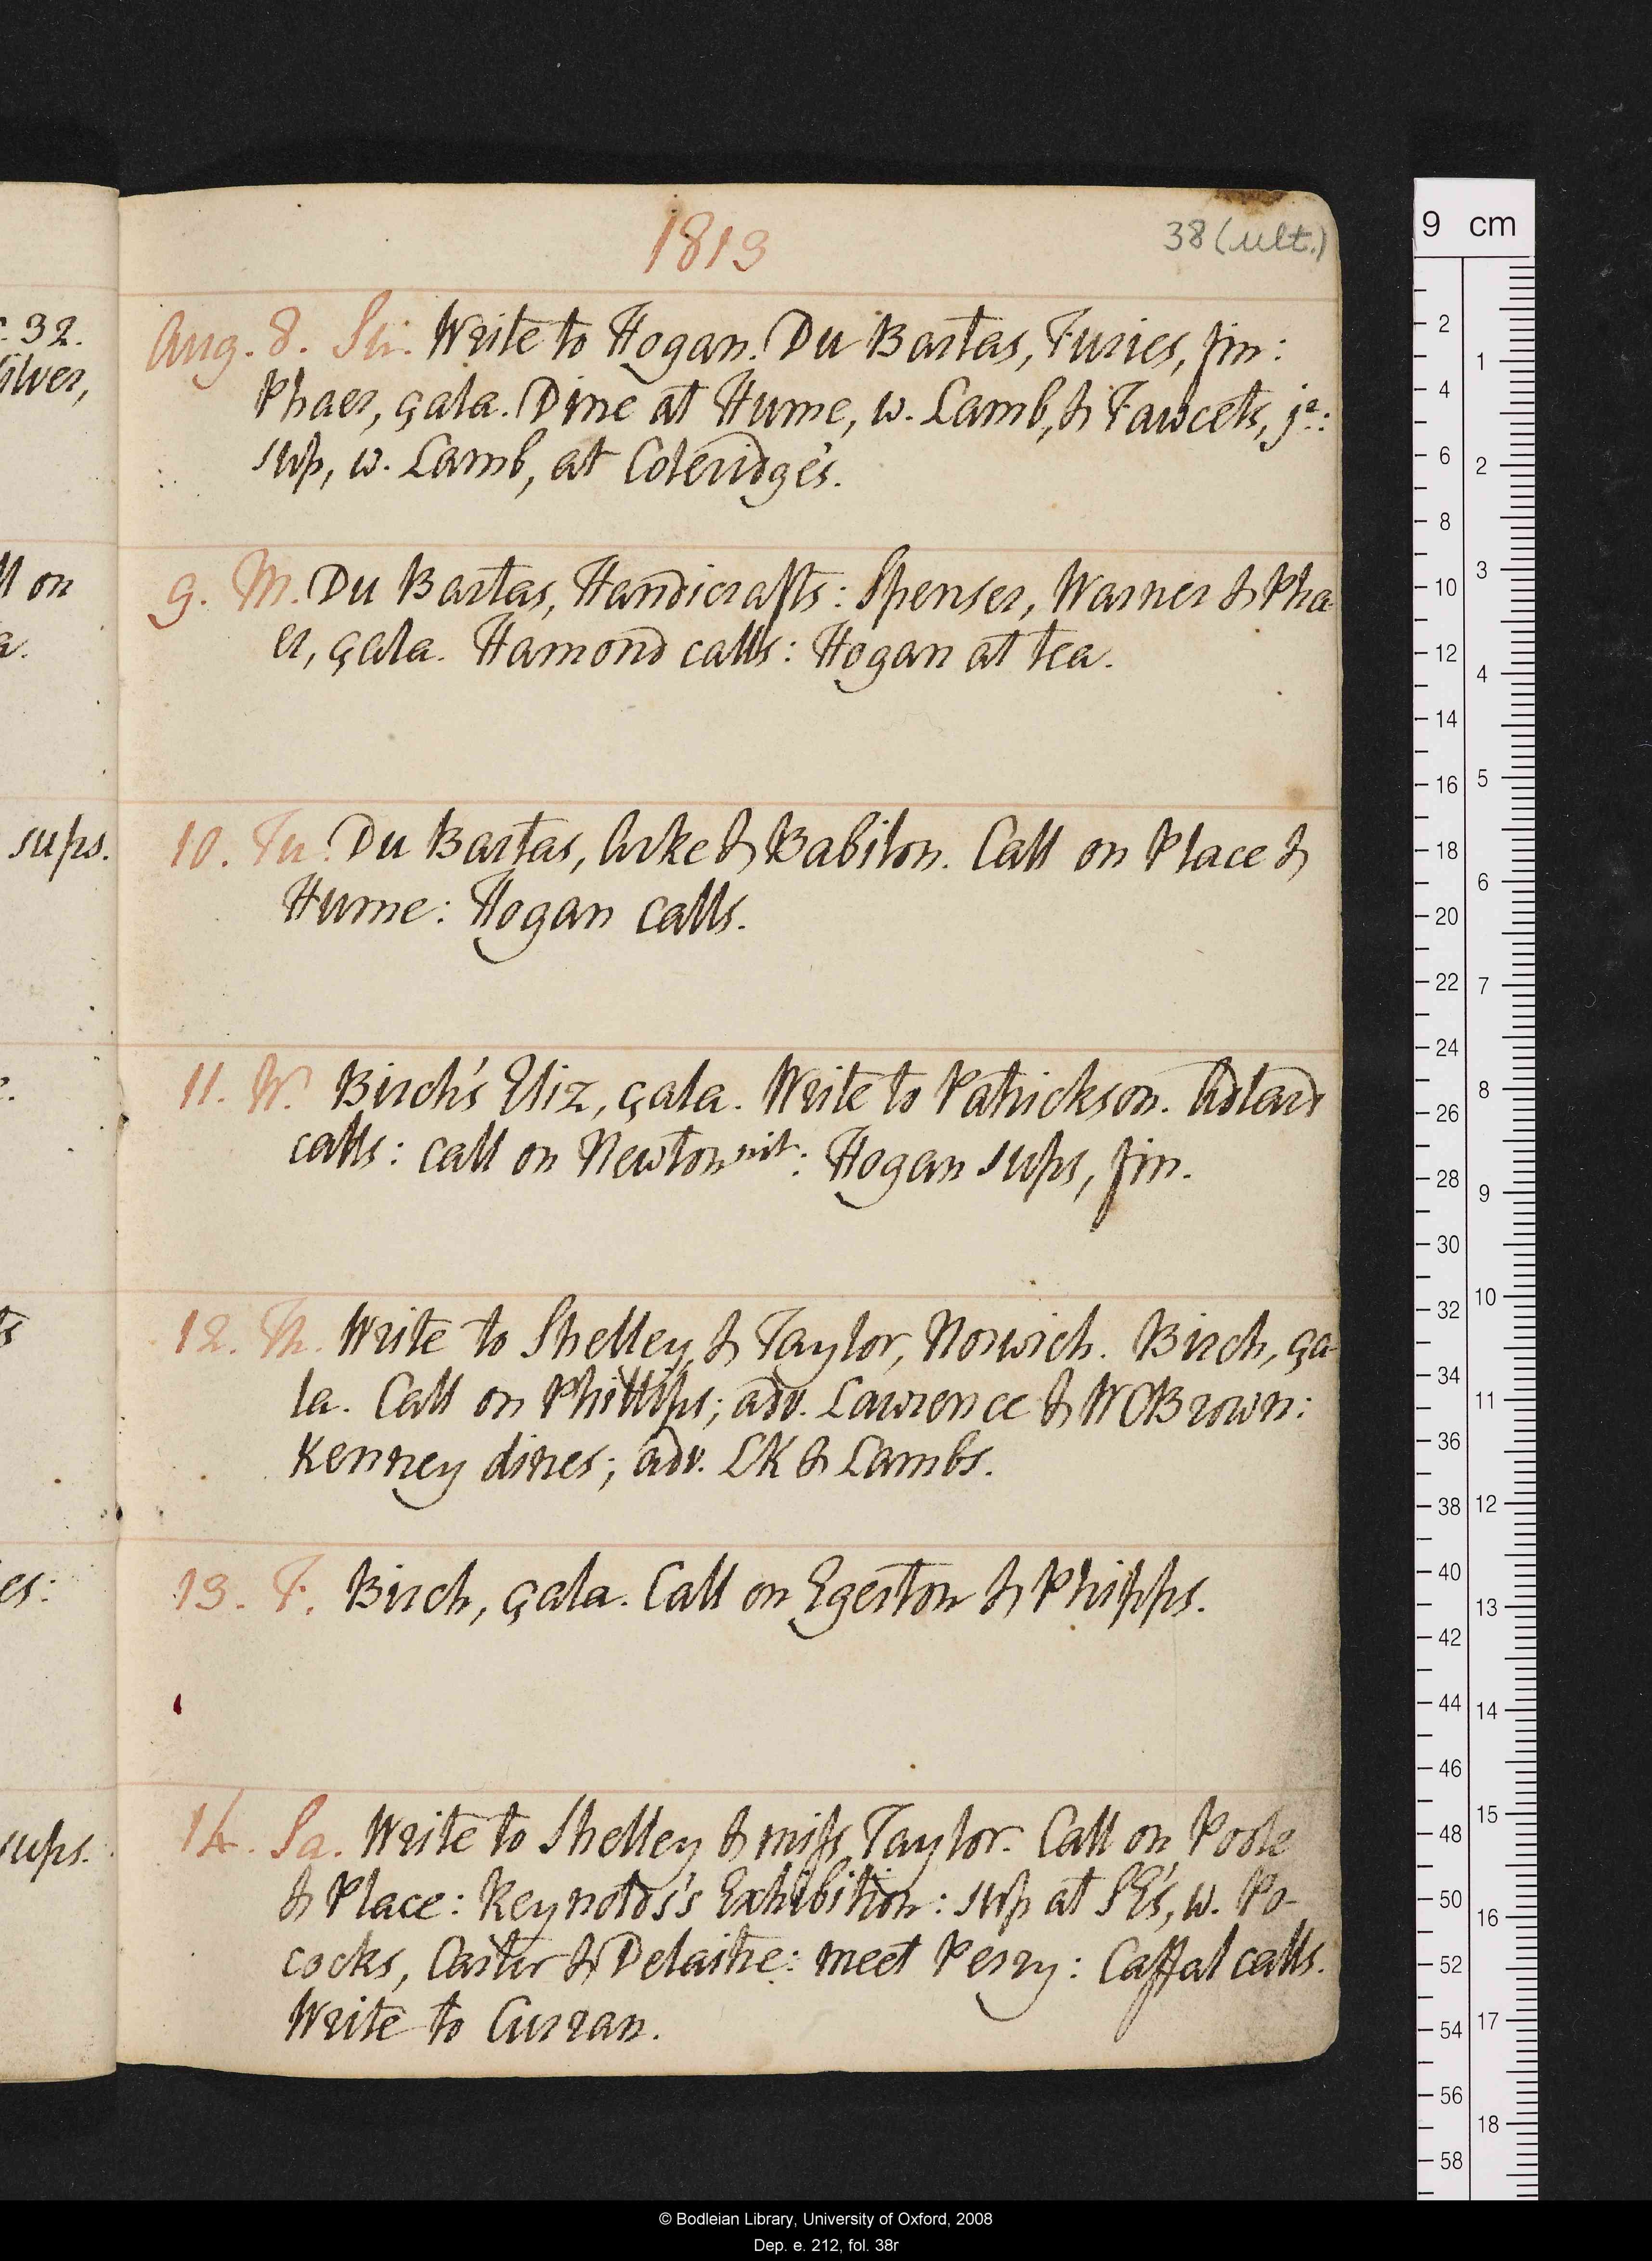 1813
38 (ult.)
Aug. 8. Su. Write to Hogan. Du Bartas, Furies, fin:
Phaer, çala. Dine at Hume, w. Lamb, & Fawcets, jᵉ:
sup, w. Lamb, at Coleridge's.
9. M. Du Bartas, Handicrafts: Spenser, Warner & Pha-
er, çala. Hamond calls: Hogan at tea.
10. Tu. Du Bartas, Arke & Babilon. Call on Place &
Hume: Hogan calls.
11. W. Birch's Eliz, çala. Write to Patrickson. Adlard
calls: call on Newton nit: Hogan sups, fin.
12. Th. Write to Shelley, & Taylor, Norwich. Birch, ça-
la. Call on Phillips; adv. Lawrence & WCBrown:
Kenney dines; adv. LK & Lambs.
13. F. Birch, çala. Call on Egerton & Phipps.
14. Sa. Write to Shelley & miss Taylor. Call on Poole
& Place: Reynolds's Exhibition: sup at SE's, w. Po-
cocks, Carter & Delaitre: meet Perry: Caffal calls.
Write to Curran.
: 32.
silver,
ll on
a.
sups.
ts
es:
sups.
9 cm
2
4
6
8
10
12
14
16
18
20
22
24
26
28
30
32
34
36
38
40
42
44
46
48
50
52
54
56
58
1
2
3
4
5
6
7
8
9
10
11
12
13
14
15
16
17
18
© Bodleian Library, University of Oxford, 2008
Dep. e. 212, fol. 38r